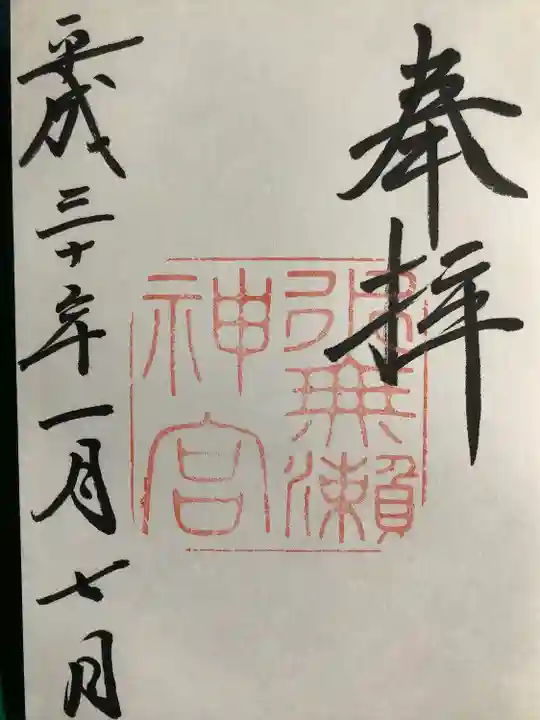 奉拝
無瀬
神宮
平成三十年一月七日